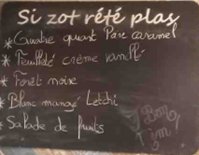 Si zot rété plas
* Quatre quart Pare caramel
* Feuilleté crème vanillé
* Forêt noire
* Blanc mangé Letchi
* Salade de fruits